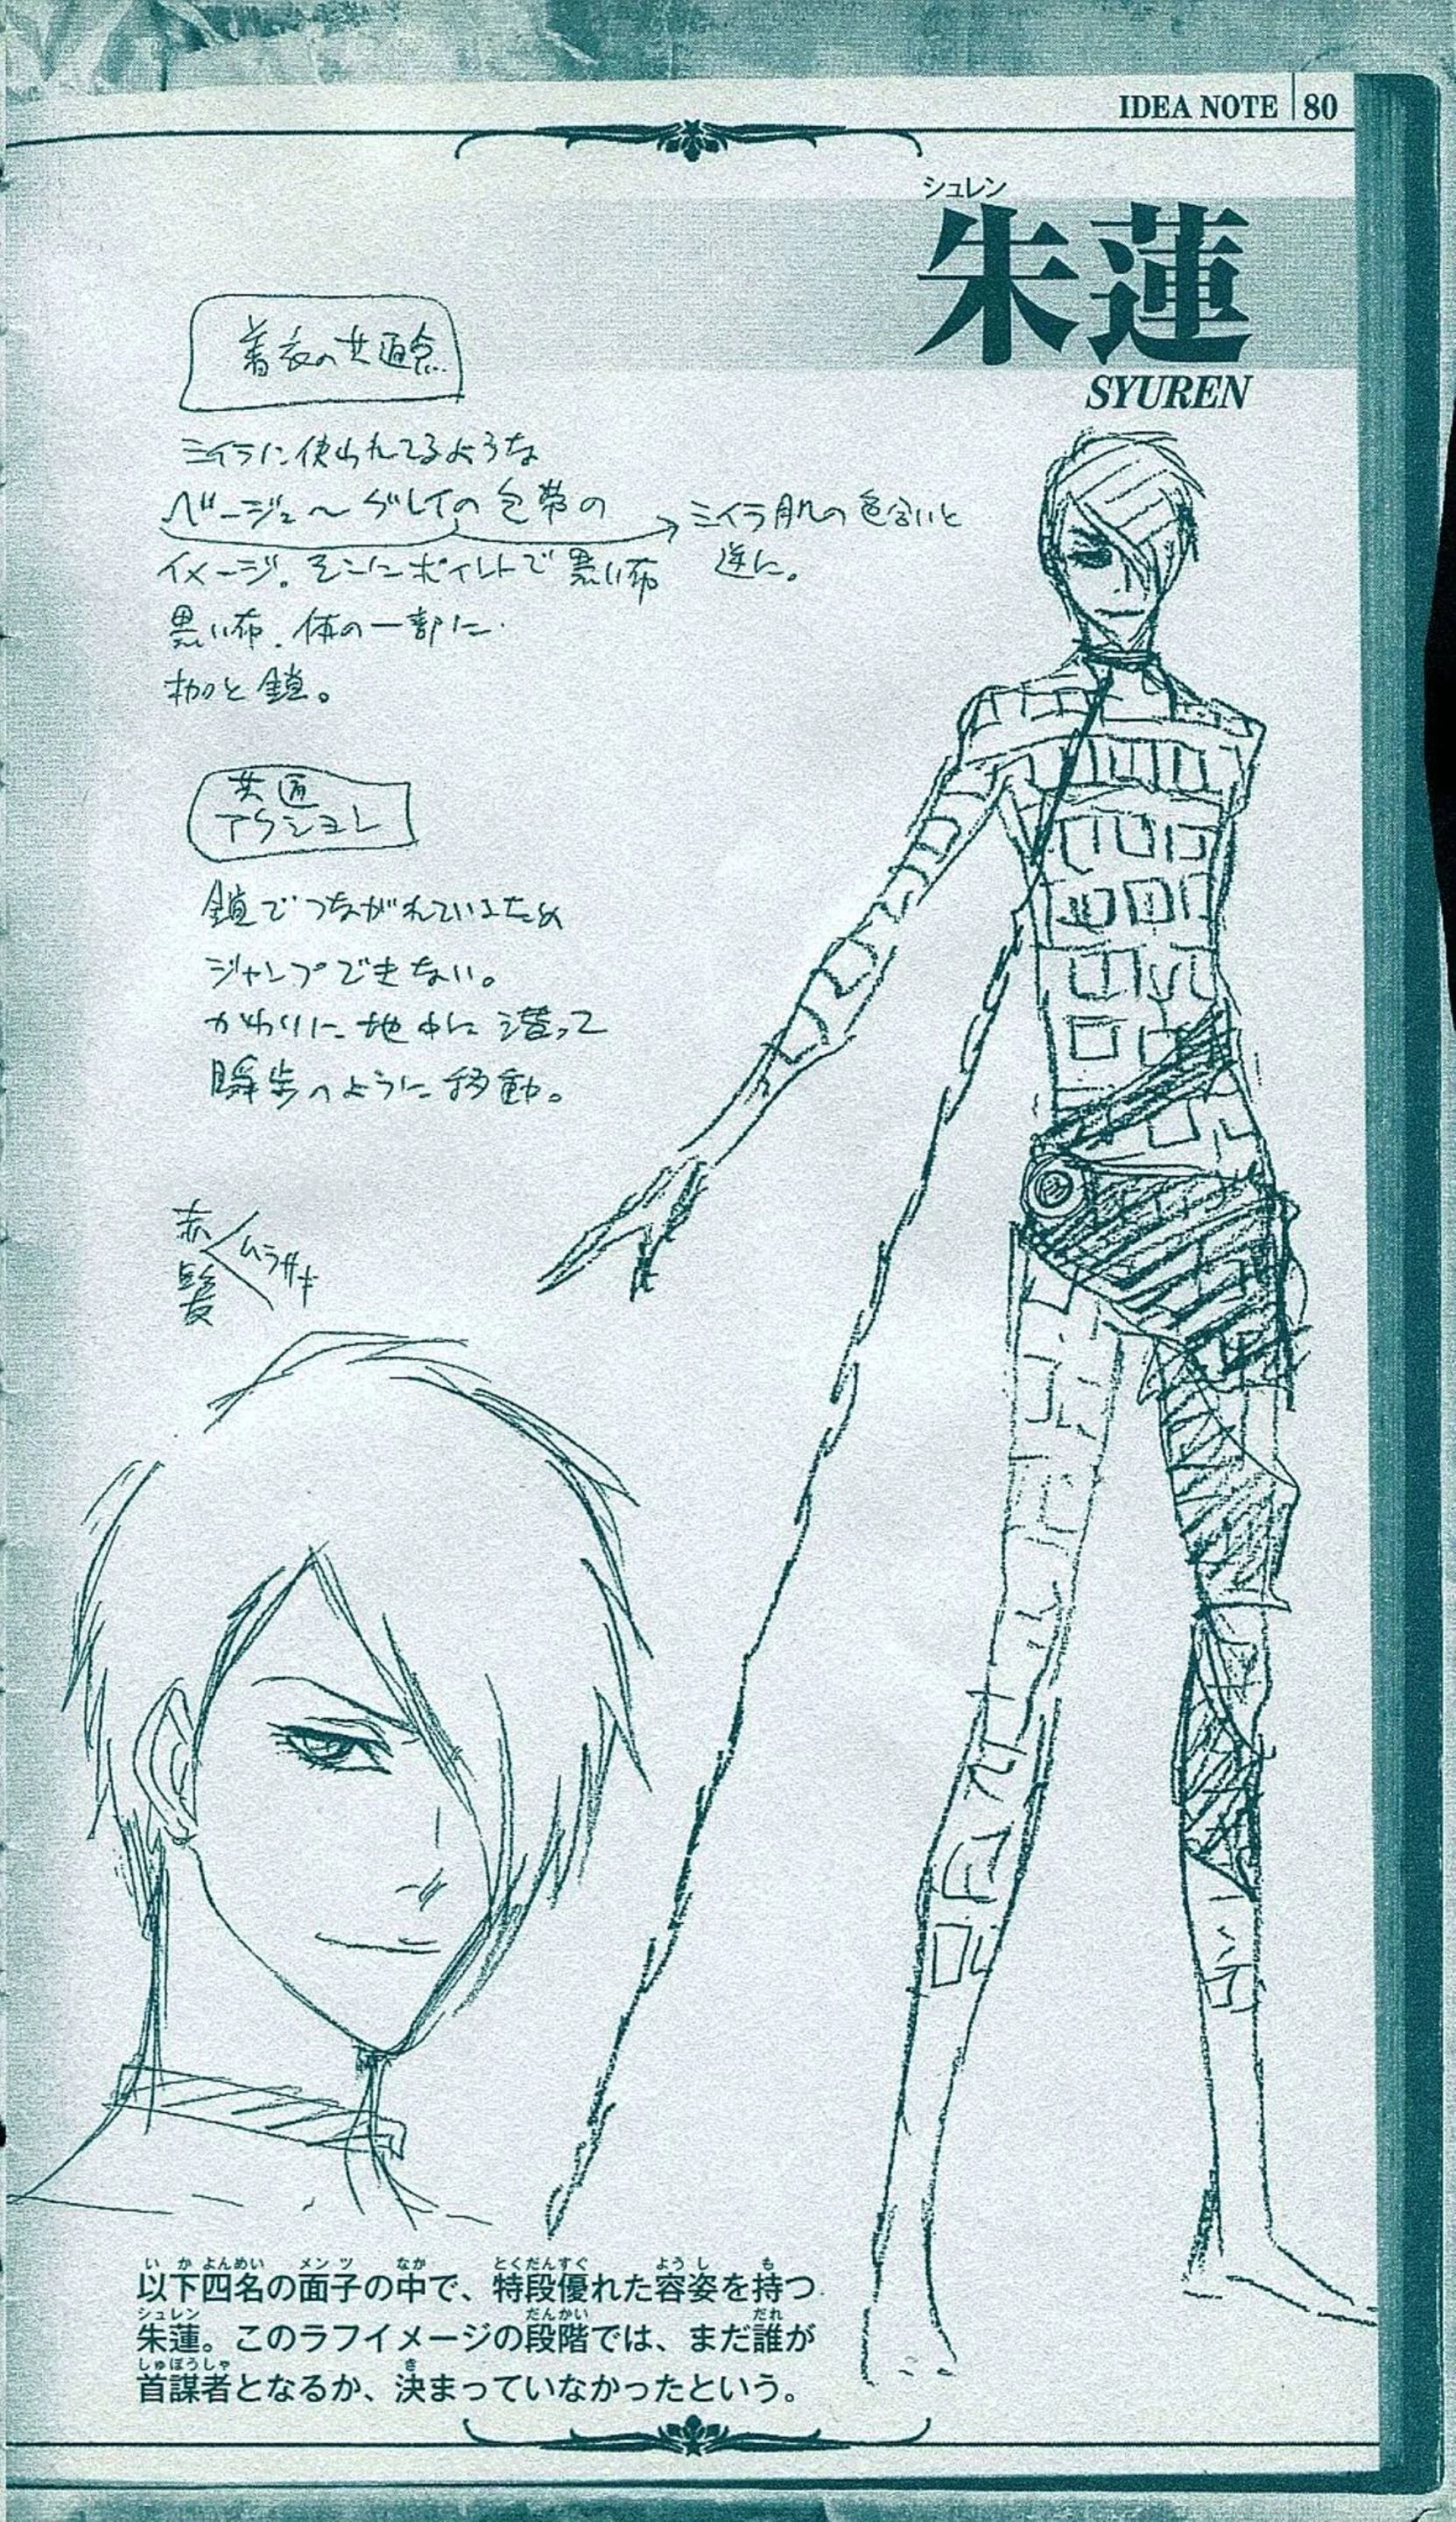 IDEA NOTE 80
シュレン
朱蓮
SYUREN
着衣の共通点
ミイラに使われてるような
ベージュ〜グレイの包帯の
イメージ。そこにポイントで黒い布
黒い布、体の一部に
枷と鎖。
ミイラ肌の色合いと
逆に。
共通
アクション
鎖でつながれているため
ジャンプできない。
かわりに地中に潜って
瞬歩のように移動。
赤髪
ムラサキ
いかよんめい メンツ なか とくだんすぐ ようし も
以下四名の面子の中で、特段優れた容姿を持つ
シュレン だんかい だれ
朱蓮。このラフイメージの段階では、まだ誰が
しゅぼうしゃ き
首謀者となるか、決まっていなかったという。